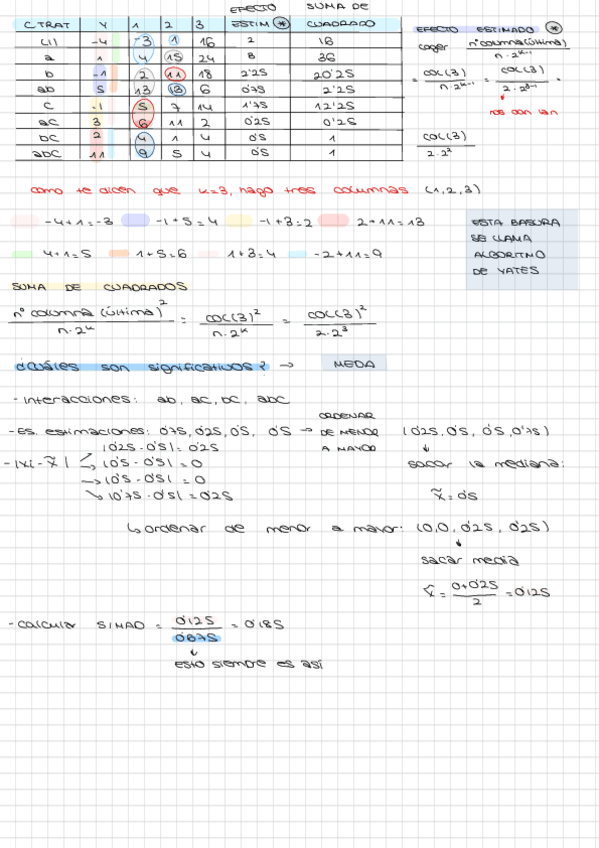 EFECTO SUMA DE
C TRAT Y 1 2 3 ESTIM * CUADRADO
(1) -4 -3 1 16 2 18
a 1 4 15 24 8 36
b -1 2 11 18 2'25 20'25
ab 5 13 13 6 0'75 2'25
C -1 5 7 14 1'75 12'25
aC 3 6 11 2 0'25 0'25
bC 2 4 1 4 0'5 1
abC 11 9 5 4 0'5 1
EFECTO ESTIMADO *
coger nº columna (última) / n·2^(k-1)
= COL(3) / n·2^(k-1) = COL(3) / 2·2^(3-1) =
nos dan
COL(3) / 2·2²
como te dicen que k=3, hago tres columnas (1,2,3)
-4+1=-3 -1+5=4 -1+3=2 2+11=13
4+1=5 1+5=6 1+3=4 -2+11=9
ESTA BASURA
SE LLAMA
ALGORITMO
DE YATES
SUMA DE CUADRADOS
nº columna (última)² / n·2^k = COL(3)² / n·2^k = COL(3)² / 2·2³
¿cuáles son significativos? → MEDA
- Interacciones: ab, ac, bc, abc
- Es. estimaciones: 0'75, 0'25, 0'5, 0'5 → ORDENAR DE MENOR A MAYOR (0'25, 0'5, 0'5, 0'75)
- |xi - x̃| |0'25 - 0'5| = 0'25
|0'5 - 0'5| = 0
→ |0'5 - 0'5| = 0
|0'75 - 0'5| = 0'25
sacar la mediana:
x̃ = 0'5
↳ ordenar de menor a mayor: (0, 0, 0'25, 0'25)
sacar media
x̃ = 0+0'25 / 2 = 0'125
- Calcular S/MAD = 0'125 / 0'675 = 0'185
esto siempre es así